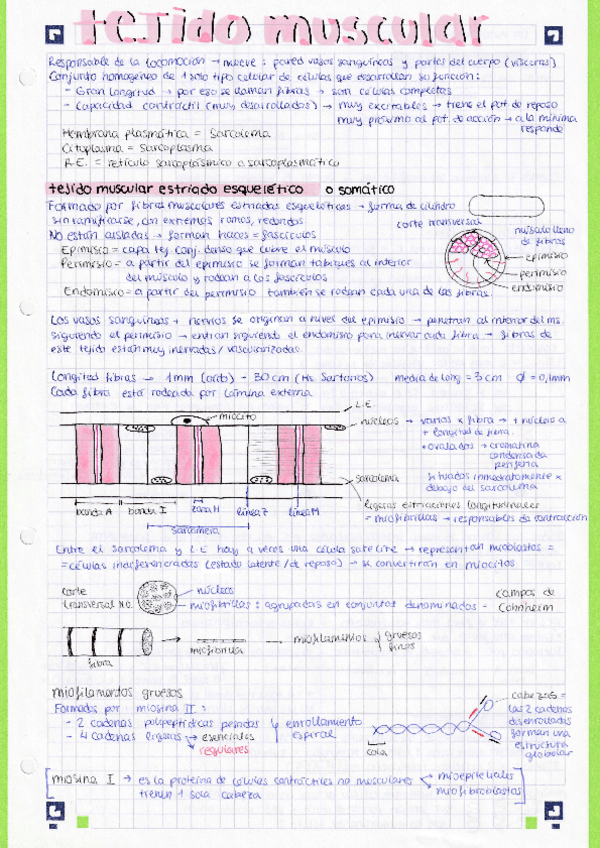 tejido muscular
Responsable de la locomoción → mueve: pared vasos sanguíneos y partes del cuerpo (vísceras)
Conjunto homogéneo de 1 solo tipo celular de células que desarrollan su función:
- Gran longitud → por eso se llaman fibras → son células completas
- Capacidad contráctil (muy desarrollados) → muy excitables → tiene el pot. de reposo
muy próximo al pot. de acción → a la mínima
responde
Membrana plasmática = Sarcolema
Citoplasma = Sarcoplasma
R.E. = retículo sarcoplásmico o sarcoplasmático
tejido muscular estriado esquelético o somático
Formado por fibras musculares estriadas esqueléticas → forma de cilindro
sin ramificarse, con extremos romos, redondos
No están aisladas → forman haces = fascículos
Epimisio = capa tej. conj. denso que cubre el músculo
Perimisio = a partir del epimisio se forman tabiques al interior
del músculo y rodean a los fascículos
Endomisio = a partir del perimisio también se rodean cada una de las fibras.
corte transversal
músculo lleno
de fibras
epimisio
perimisio
endomisio
Los vasos sanguíneos + nervios se originan a nivel del epimisio → penetran al interior del ms.
siguiendo el perimisio → entran siguiendo el endomisio para inervar cada fibra → fibras de
este tejido están muy inervadas/vascularizadas.
Longitud fibras → 1mm (oído) - 30 cm (Ms Sartorios) media de long = 3 cm ϕ = 0,1mm
Cada fibra está rodeada por lámina externa
L.E
miocito
núcleos → varios x fibra → + núcleo a
+ longitud de fibra.
• ovalados → cromatina
condensada
periferia
Situados inmediatamente x
debajo del sarcolema
sarcolema
ligeras estriaciones longitudinales
= miofibrillas → responsables de contracción
banda A banda I zona H línea Z línea M
sarcómera
Entre el sarcolema y L.E hay a veces una célula satélite → representan mioblastos =
= células indiferenciadas (estado latente/de reposo) → se convertirán en miocitos
corte
transversal M.O.
núcleos
miofibrillas: agrupadas en conjuntos denominados - campos de
Cohnheim
fibra
miofibrilla
miofilamentos gruesos
finos
miofilamentos gruesos
Formados por miosina II:
- 2 cadenas polipeptídicas pesadas
- 4 cadenas ligeras → esenciales
regulares
enrollamiento
espiral
cola
cabezas =
las 2 cadenas
desenrolladas
forman una
estructura
globular
miosina I → es la proteína de células contráctiles no musculares
tienen 1 sola cabeza
mioepiteliales
miofibroblastos